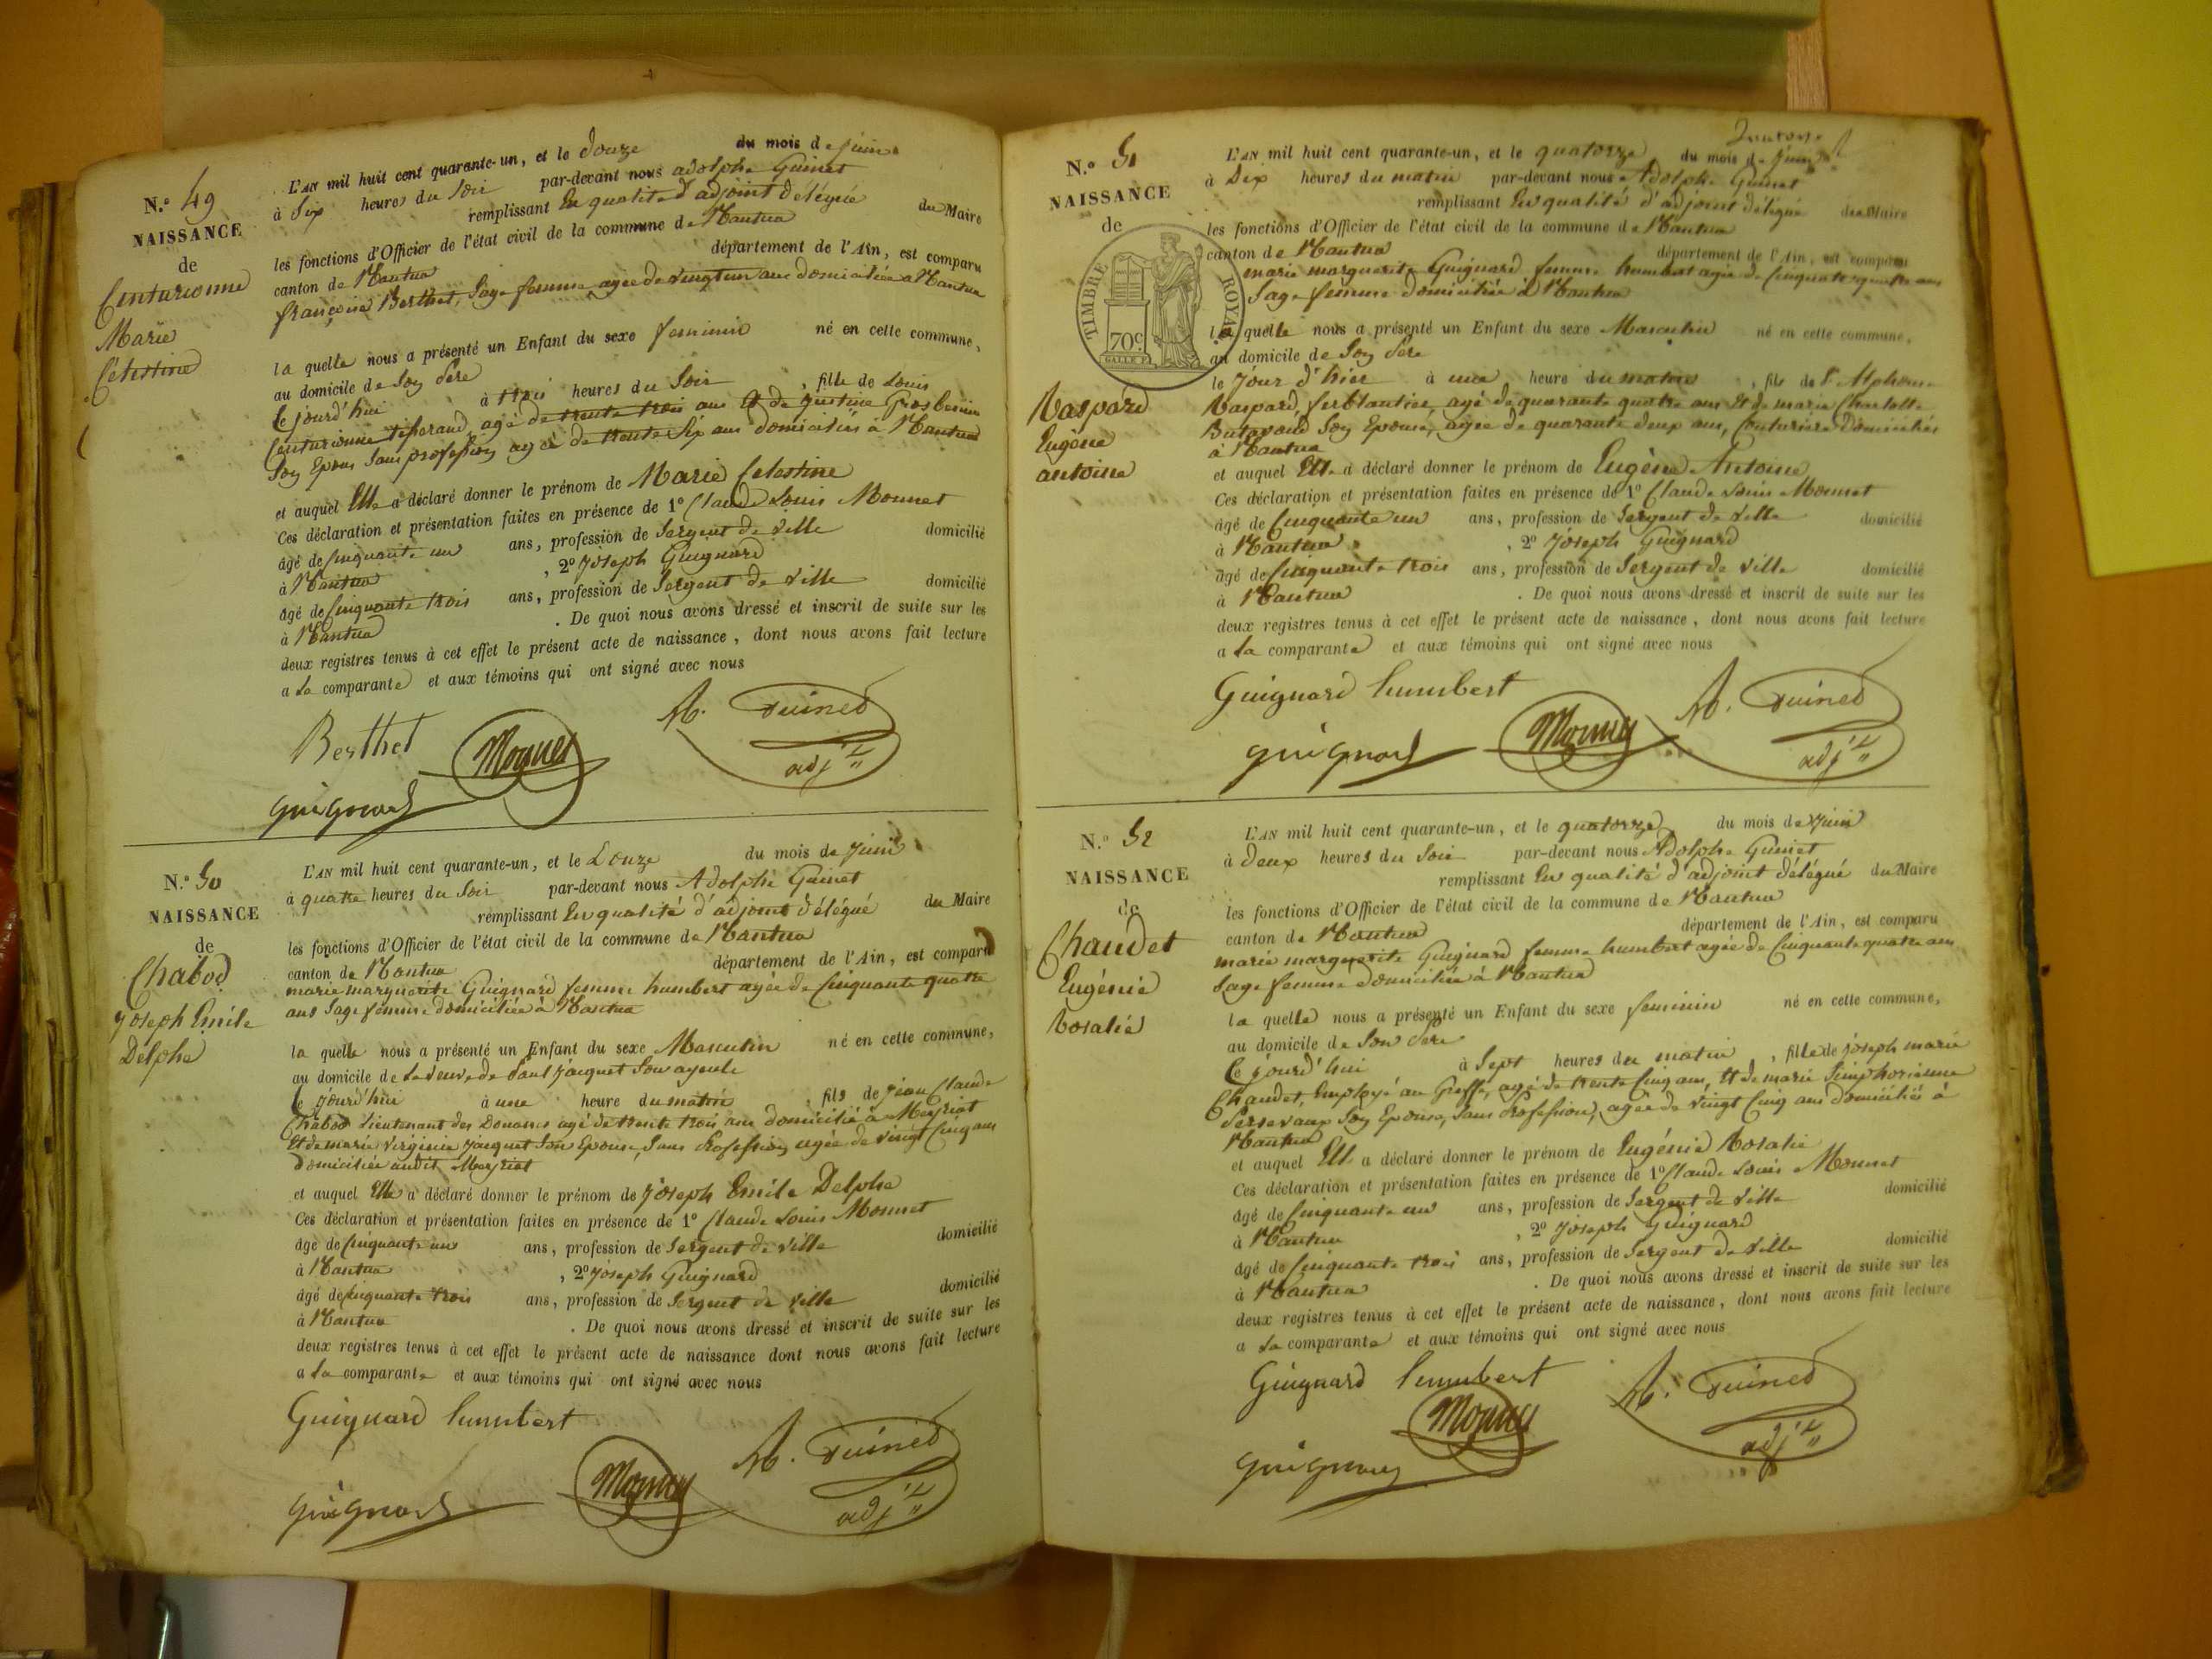 N.º 49
NAISSANCE
de
Centurionne
Marie
Célestine
L'AN mil huit cent quarante-un, et le douze du mois de juin
à Six heures du Soir par-devant nous adolphe Guinet
remplissant En qualité d'adjoint délégué du Maire
les fonctions d'Officier de l'état civil de la commune de Nantua
canton de Nantua département de l'Ain, est comparu
françoise Berthet, Sage femme agée de vingt un ans domiciliée à Nantua
la quelle nous a présenté un Enfant du sexe feminin né en cette commune,
au domicile de Son Père
Ce jourd'hui à trois heures du Soir, fille de Louis
Centurionne tisserand, agé de trente trois ans Et de justine
Son Epouse Sans profession agée de trente Six ans domiciliés à Nantua
et auquel Elle a déclaré donner le prénom de Marie Célestine
Ces déclaration et présentation faites en présence de 1º Claude Louis Monnet
âgé de Cinquante un ans, profession de Sergent de Ville domicilié
à Nantua, 2º Joseph Guignard
âgé de Cinquante trois ans, profession de Sergent de Ville domicilié
à Nantua. De quoi nous avons dressé et inscrit de suite sur les
deux registres tenus à cet effet le présent acte de naissance, dont nous avons fait lecture
a La comparante et aux témoins qui ont signé avec nous
Berthet Monnet A. Guinet
adj.t
guignard
N.º 50
NAISSANCE
de
Chabod
Joseph Emile
Delphe
L'AN mil huit cent quarante-un, et le Douze du mois de Juin
à quatre heures du Soir par-devant nous Adolphe Guinet
remplissant En qualité d'adjoint délégué du Maire
les fonctions d'Officier de l'état civil de la commune de Nantua
canton de Nantua département de l'Ain, est comparu
marie marguerite Guignard femme humbert agée de Cinquante quatre
ans Sage femme domiciliée à Nantua
la quelle nous a présenté un Enfant du sexe Masculin né en cette commune,
au domicile de La Veuve de Paul Jacquet Son ayeule
Ce jourd'hui à une heure du matin, fils de Jean Claude
Chabod Lieutenant des Douanes agé de trente trois ans domicilié à Meyriat
Et de marie Virginie Jacquet Son Epouse, Sans Profession agée de vingt Cinq ans
domiciliée audit Meyriat
et auquel Elle a déclaré donner le prénom de Joseph Emile Delphe
Ces déclaration et présentation faites en présence de 1º Claude Louis Monnet
âgé de Cinquante un ans, profession de Sergent de Ville domicilié
à Nantua, 2º Joseph Guignard
âgé de Cinquante trois ans, profession de Sergent de Ville domicilié
à Nantua. De quoi nous avons dressé et inscrit de suite sur les
deux registres tenus à cet effet le présent acte de naissance dont nous avons fait lecture
a La comparante et aux témoins qui ont signé avec nous
Guignard humbert A. Guinet
guignard Monnet adj.t
N.º 51
NAISSANCE
de
TIMBRE ROYAL
70c.
Naspard
Eugène
antoine
L'AN mil huit cent quarante-un, et le quatorze du mois de juin
à Dix heures du matin par-devant nous Adolphe Guinet
remplissant En qualité d'adjoint délégué du Maire
les fonctions d'Officier de l'état civil de la commune de Nantua
canton de Nantua département de l'Ain, est comparu
marie marguerite Guignard femme humbert agée de Cinquante quatre ans
Sage femme domiciliée à Nantua
la quelle nous a présenté un Enfant du sexe Masculin né en cette commune,
au domicile de Son Père
le Jour d'hier à une heure du matin, fils de Alphonse
Naspard, ferblantier, agé de quarante quatre ans Et de marie Charlotte
Son Epouse, agée de quarante deux ans, Couturière Domiciliés
à Nantua
et auquel Elle a déclaré donner le prénom de Eugène Antoine
Ces déclaration et présentation faites en présence de 1º Claude Louis Monnet
âgé de Cinquante un ans, profession de Sergent de Ville domicilié
à Nantua, 2º Joseph Guignard
âgé de Cinquante trois ans, profession de Sergent de Ville domicilié
à Nantua. De quoi nous avons dressé et inscrit de suite sur les
deux registres tenus à cet effet le présent acte de naissance, dont nous avons fait lecture
a La comparante et aux témoins qui ont signé avec nous
Guignard humbert A. Guinet
guignard Monnet adj.t
N.º 52
NAISSANCE
de
Chaudet
Eugénie
Rosalie
L'AN mil huit cent quarante-un, et le quatorze du mois de Juin
à deux heures du Soir par-devant nous Adolphe Guinet
remplissant En qualité d'adjoint délégué du Maire
les fonctions d'Officier de l'état civil de la commune de Nantua
canton de Nantua département de l'Ain, est comparu
marie marguerite Guignard femme humbert agée de Cinquante quatre ans
Sage femme domiciliée à Nantua
la quelle nous a présenté un Enfant du sexe feminin né en cette commune,
au domicile de Son Père
Ce jourd'hui à Sept heures du matin, fille de Joseph marie
Chaudet, Employé au Greffe, agé de trente Cinq ans, Et de marie Simphorienne
Son Epouse, Sans Profession, agée de vingt Cinq ans domiciliés à
Nantua
et auquel Elle a déclaré donner le prénom de Eugénie Rosalie
Ces déclaration et présentation faites en présence de 1º Claude Louis Monnet
âgé de Cinquante un ans, profession de Sergent de Ville domicilié
à Nantua, 2º Joseph Guignard
âgé de Cinquante trois ans, profession de Sergent de Ville domicilié
à Nantua. De quoi nous avons dressé et inscrit de suite sur les
deux registres tenus à cet effet le présent acte de naissance, dont nous avons fait lecture
a La comparante et aux témoins qui ont signé avec nous
Guignard humbert A. Guinet
guignard Monnet adj.t